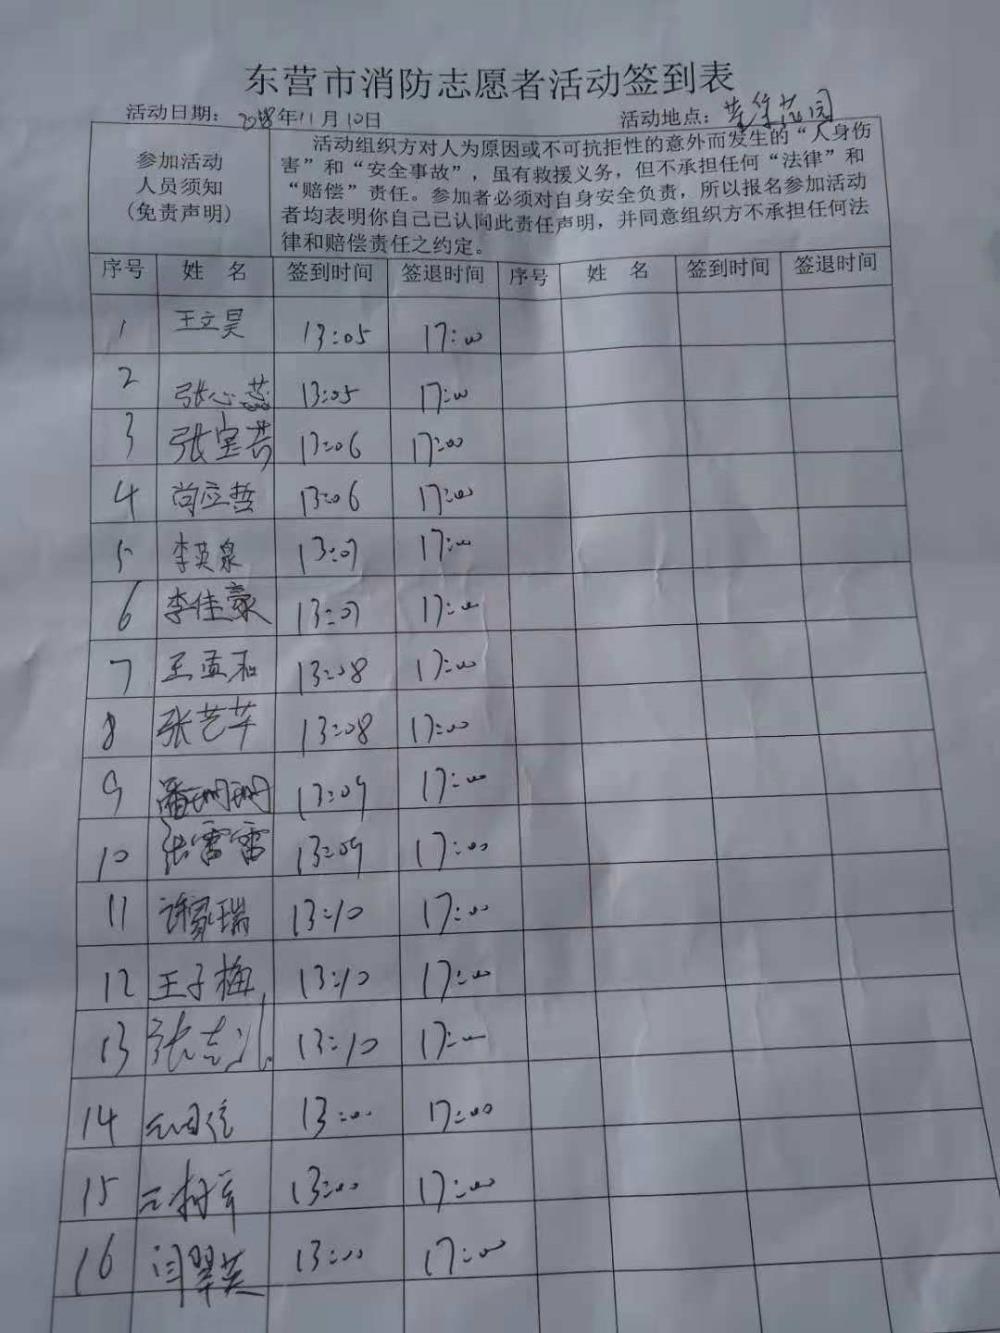 东营市消防志愿者活动签到表
活动日期：2018年11月10日 活动地点：花园
参加活动
人员须知
（免责声明）
活动组织方对人为原因或不可抗拒性的意外而发生的“人身伤
害”和“安全事故”，虽有救援义务，但不承担任何“法律”和
“赔偿”责任。参加者必须对自身安全负责，所以报名参加活动
者均表明你自己已认同此责任声明，并同意组织方不承担任何法
律和赔偿责任之约定。
序号 姓 名 签到时间 签退时间 序号 姓 名 签到时间 签退时间
1 王立昊 13:05 17:00
2 张心蕊 13:05 17:00
3 张宝芸 13:06 17:00
4 尚应哲 13:06 17:00
5 李英泉 13:07 17:00
6 李佳豪 13:07 17:00
7 王孟和 13:08 17:00
8 张艺苹 13:08 17:00
9 潘珊珊 13:09 17:00
10 张雷雷 13:09 17:00
11 许家瑞 13:10 17:00
12 王子梅 13:10 17:00
13 张志 13:10 17:00
14 13:00 17:00
15 13:00 17:00
16 闫翠英 13:00 17:00